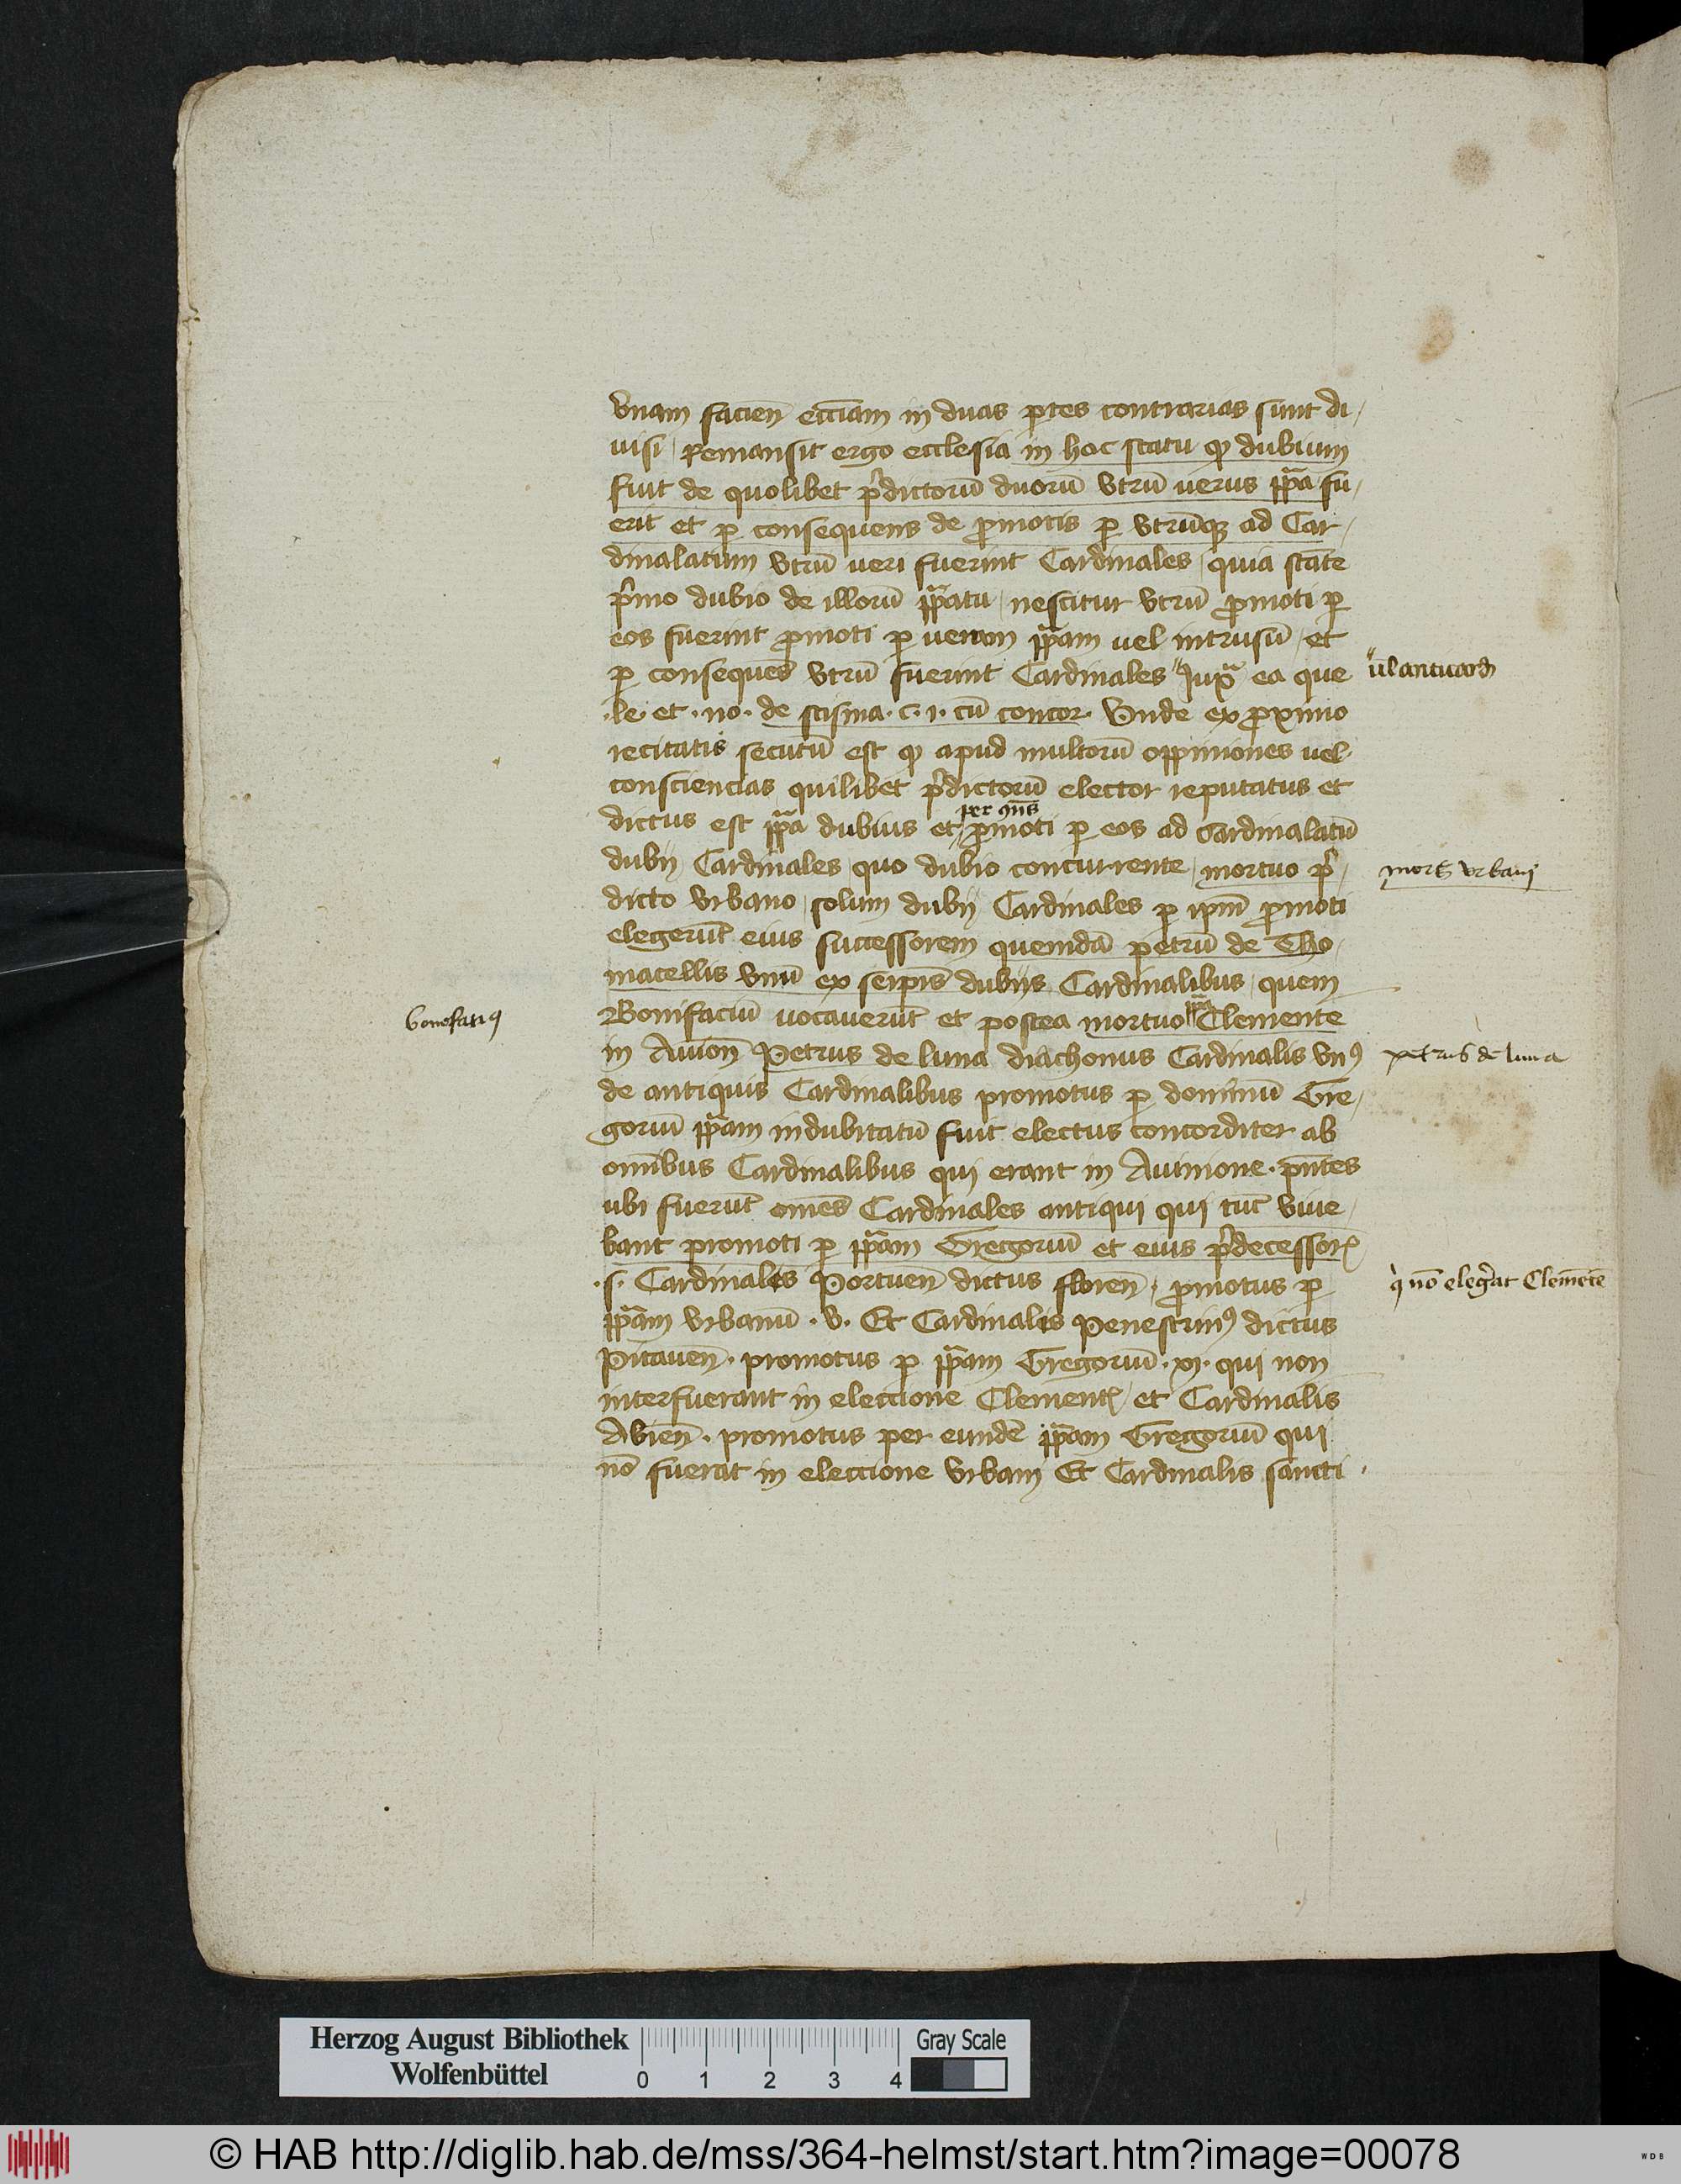 vnam facien̄ ecc̄iam in duas ꝑtes contrarias sunt di⸗
uisi Remansit ergo ecclesia in hoc statu ꝙ dubium
fuit de quolibet p̄dictorū duorū vtrū uerus pp̄a fu⸗
erit et ꝑ consequens de ꝓmotis ꝑ vtrūqꝫ ad Car⸗
dinalatum vtrū ueri fuerint Cardinales quia stāte
p̄mo dubio de illorū pp̄atu nescitur vtrū ꝓmoti ꝑ
eos fuerint ꝓmoti ꝑ uerum pp̄am uel intrusū et
ꝑ conseques̄ vtrū fuerint Cardinales Juxᵃ ea que
ul anticard
.le. et .no. de scisma .c. 1. cū concor. Vnde ex ꝓximo
recitatis secutū est ꝙ apud multorū oppiniones uel
consciencias quilibet p̄dictorū elector reputatus et
per ꝯn̄s
dictus est pp̄a dubius et ꝓmoti ꝑ eos ad Cardinalatū
dubij Cardinales quo dubio concurrente mortuo p̄⸗
mors vrbani
dicto vrbano solum dubij Cardinales ꝑ ipm̄ ꝓmoti
elegerūt eius successorem quemdā petrū de Tho⸗
macellis vnū ex serpis̄ dubijs Cardinalibus quem
Bonifaciū uocauerūt et postea mortuo pp̄a Clemente
bonefatiꝰ
in Auion̄ Petrus de luna diachonus Cardinalis vnꝰ
petrus de luna
de antiquis Cardinalibus promotus ꝑ dominū Gre⸗
goriū pp̄am indubitatū fuit electus concorditer ab
omībus Cardinalibus qui erant in Auinione . pn̄tes
ubi fuerūt omēs Cardinales antiqui qui tūc viue⸗
bant promoti ꝑ pp̄am Gregoriū et eius p̄decessorꝭ
.s. Cardinales Portuen̄ dictus floren̄ . ꝓmotus ꝑ
q̇ nō elegerāt Clemētē
pp̄am vrbanū .v. Et Cardinalis Penestrinꝰ dictus
Pitauen̄ . promotus ꝑ pp̄am Gregoriū .xj. qui non
interfuerant in eleccione Clementꝭ et Cardinalis
Albien̄ . promotus per eundē pp̄am Gregoriū qui
nō fuerat in eleccione vrbani Et Cardinalis sancti
Herzog August Bibliothek
Wolfenbüttel
0 1 2 3 4
Gray Scale
© HAB http://diglib.hab.de/mss/364-helmst/start.htm?image=00078
WDB